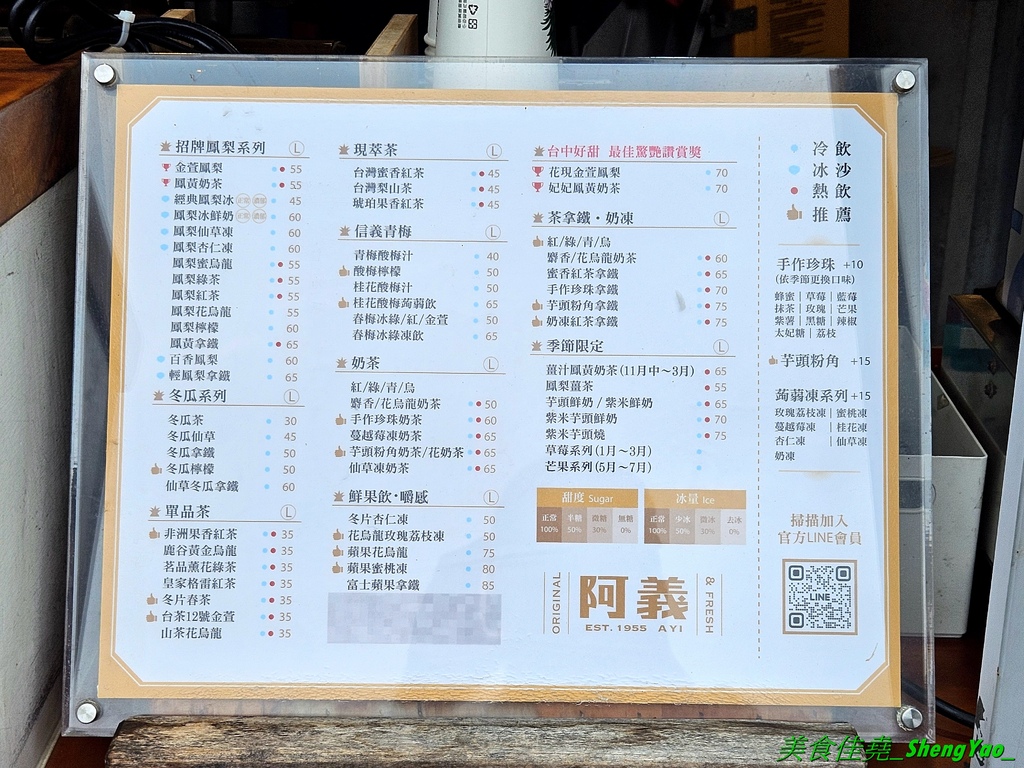 招牌鳳梨系列 L
金萱鳳梨 55
鳳黃奶茶 55
經典鳳梨冰 正常 濃郁 45
鳳梨冰鮮奶 正常 濃郁 60
鳳梨仙草凍 60
鳳梨杏仁凍 60
鳳梨蜜烏龍 55
鳳梨綠茶 55
鳳梨紅茶 55
鳳梨花烏龍 55
鳳梨檸檬 60
鳳黃拿鐵 65
百香鳳梨 60
輕鳳梨拿鐵 65
冬瓜系列 L
冬瓜茶 30
冬瓜仙草 45
冬瓜拿鐵 50
冬瓜檸檬 50
仙草冬瓜拿鐵 60
單品茶 L
非洲果香紅茶 35
鹿谷黃金烏龍 35
茗品薰花綠茶 35
皇家格雷紅茶 35
冬片春茶 35
台茶12號金萱 35
山茶花烏龍 35
現萃茶 L
台灣蜜香紅茶 45
台灣梨山茶 45
琥珀果香紅茶 45
信義青梅 L
青梅酸梅汁 40
酸梅檸檬 50
桂花酸梅汁 50
桂花酸梅蒟蒻飲 65
春梅冰綠/紅/金萱 50
春梅冰綠凍飲 65
奶茶 L
紅/綠/青/烏
麝香/花烏龍奶茶 50
手作珍珠奶茶 60
蔓越莓凍奶茶 65
芋頭粉角奶茶/花奶茶 65
仙草凍奶茶 65
鮮果飲·嚼感 L
冬片杏仁凍 50
花烏龍玫瑰荔枝凍 50
蘋果花烏龍 75
蘋果蜜桃凍 80
富士蘋果拿鐵 85
台中好甜 最佳驚艷讚賞獎
花現金萱鳳梨 70
妃妃鳳黃奶茶 70
茶拿鐵·奶凍 L
紅/綠/青/烏
麝香/花烏龍奶茶 60
蜜香紅茶拿鐵 65
手作珍珠拿鐵 70
芋頭粉角拿鐵 75
奶凍紅茶拿鐵 75
季節限定 L
薑汁鳳黃奶茶(11月中~3月) 65
鳳梨薑茶 55
芋頭鮮奶 / 紫米鮮奶 65
紫米芋頭鮮奶 70
紫米芋頭燒 75
草莓系列(1月~3月)
芒果系列(5月~7月)
甜度 Sugar
正常 半糖 微糖 無糖
100% 50% 30% 0%
冰量 Ice
正常 少冰 微冰 去冰
100% 50% 30% 0%
ORIGINAL
阿義
EST. 1955 AYI
& FRESH
冷飲
冰沙
熱飲
推薦
手作珍珠 +10
(依季節更換口味)
蜂蜜｜草莓｜藍莓
抹茶｜玫瑰｜芒果
紫薯｜黑糖｜辣椒
太妃糖｜荔枝
芋頭粉角 +15
蒟蒻凍系列 +15
玫瑰荔枝凍｜蜜桃凍
蔓越莓凍｜桂花凍
杏仁凍｜仙草凍
奶凍
掃描加入
官方LINE會員
LINE
美食佳堯_ShengYao_